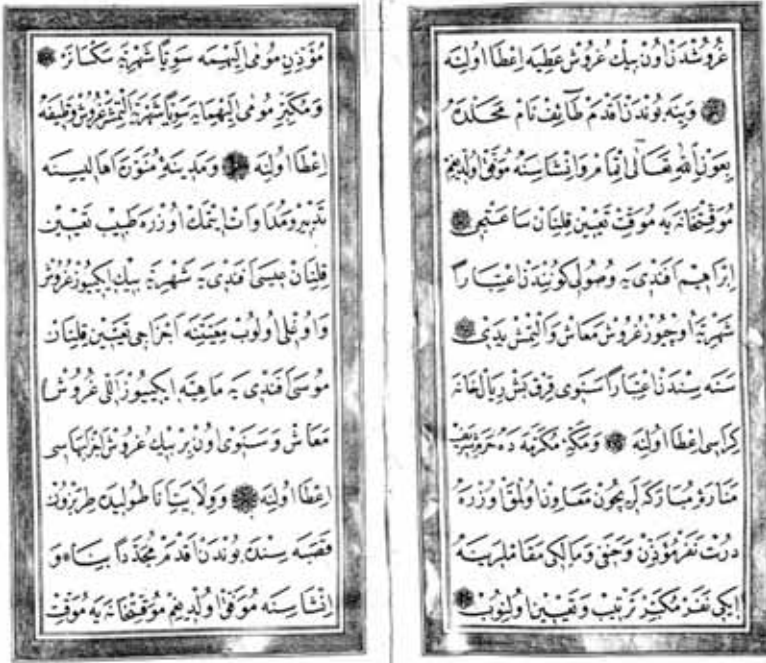 غروشدن اون بیك غروش عطیه اعطا اولنه
وینه بوندن اقدم طائف نام محلده
بعون الله تعالی اتمام وانشاسنه موفق اولدیغم
موقتخانه یه موقت تعیین قلنان ساعتجی
ابراهیم افندی یه وصولی کونندن اعتباراً
شهریة اوچیوز غروش معاش والتمش یدی
سنه سندن اعتباراً سنوی قرق بش ریال خانه
کراسی اعطا اولنه ومکۀ مکرمه ده حرم شریف
منارۀ مبارکه لریچون معاون اولمق اوزره
درت نفر مؤذن وحنفی ومالکی مقاملرینه
ایکی نفر مکبر ترتیب وتعیین اولنوب
مؤذن مومی الیهمه سویاً شهریة سکسانر
ومکبر مومی الیهمایه سویاً شهریة التمشر غروش وظیفه
اعطا اولنه ومدینۀ منوره اهالیسنه
تدبیر ومداوات ایتمك اوزره طبیب تعیین
قلنان عیسی افندی یه شهریة بیك ایکیوز غروش
واوغلی اولوب معیتنه اجزاجی تعیین قلنان
موسی افندی یه ماهیه ایکیوز اللی غروش
معاش وسنوی اون بر بیك غروش اجزا بهاسی
اعطا اولنه وولایتیا ناطولیده طربزون
قصبه سنده بوندن اقدم مجدداً بناء و
انشاسنه موفق اولدیغم موقتخانه یه موقت